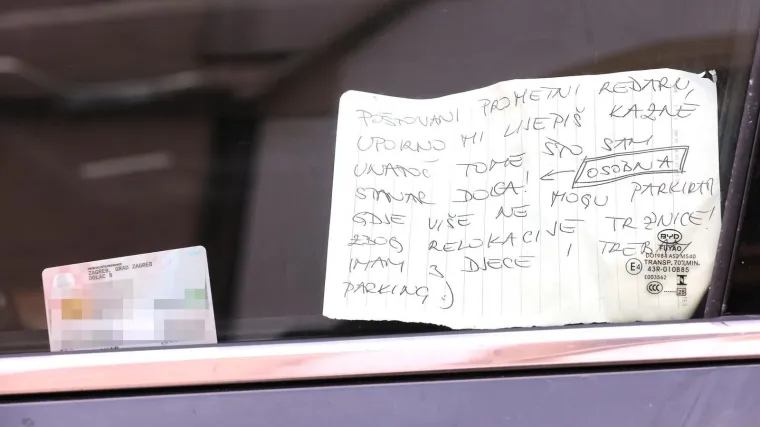 POŠTOVANI PROMETNI REDARU,
UPORNO MI LIJEPIŠ KAZNE
UNATOČ TOME ŠTO SAM
STANAR DOLCA! ← OSOBNA
GDJE VIŠE NE MOGU PARKIRATI
ZBOG RELOKACIJE TRŽNICE!
IMAM 3 DJECE I TREBA
PARKING :)
BYD
FUYAO
TRANSP. 70%MIN.
E4 43R-010885
CCC
ZAGREB, GRAD ZAGREB
DOLAC